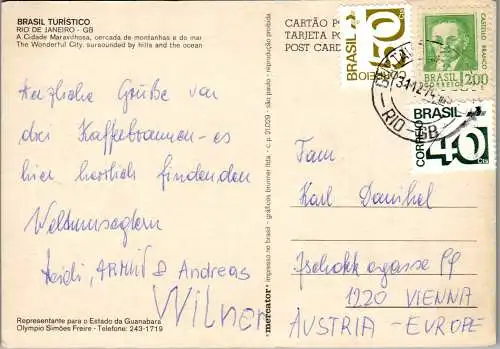 BRASIL TURÍSTICO
RIO DE JANEIRO - GB
A Cidade Maravilhosa, cercada de montanhas e do mar
The Wonderful City, surrounded by hills and the ocean
Herzliche Grüße von
drei Kaffeebraunen - es
hier herrlich findenden
Weltumseglern
Heidi, ARMIN & Andreas
Wilner
Representante para o Estado da Guanabara
Olympio Simões Freire - Telefone: 243-1719
mercator impresso no brasil - gráficos brunner ltda. - c.p. 21.029 - são paulo - reprodução proibida
CARTÃO PO
TARJETA PO
POST CARD
BRASIL 50 Cts
CORREIO
CASTELLO BRANCO
BRASIL 200
CORREIO
BRASIL
CORREIO 40 Cts
RIO - GB
Fam.
Karl
1220 VIENNA
AUSTRIA - EUROPE